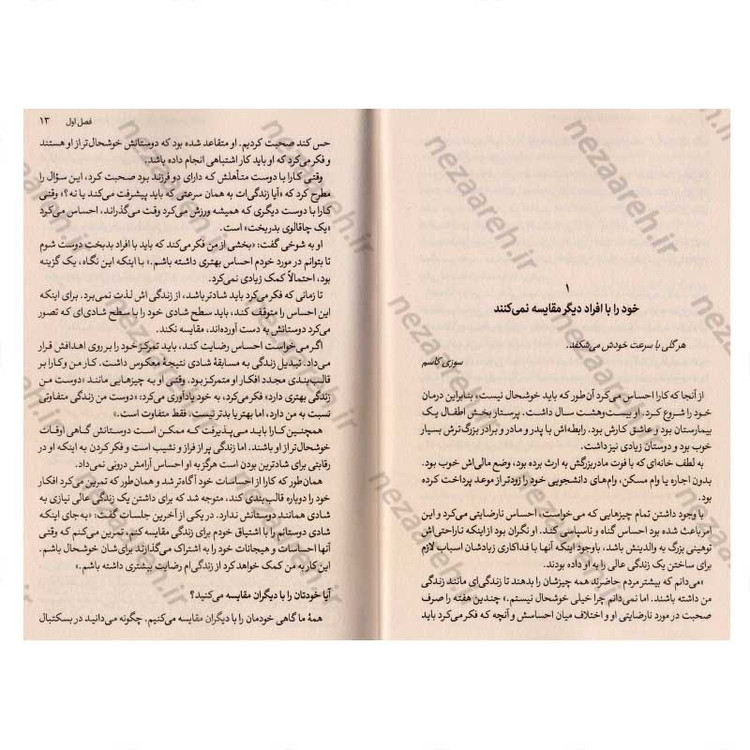 ۱
خود را با افراد دیگر مقایسه نمی‌کنند
هر گلی با سرعت خودش می‌شکفد.
سوزی کاسم
از آنجا که کارا احساس می‌کرد آن‌طور که باید خوشحال نیست، بنابراین درمان
خود را شروع کرد. او بیست‌وهشت سال داشت. پرستار بخش اطفال یک
بیمارستان بود و عاشق کارش بود. رابطه‌اش با پدر و مادر و برادر بزرگ‌ترش بسیار
خوب بود و دوستان زیادی نیز داشت.
به لطف خانه‌ای که با فوت مادربزرگش به ارث برده بود، وضع مالی‌اش خوب بود.
بدون اجاره یا وام مسکن، وام‌های دانشجویی خود را زودتر از موعد پرداخت کرده
بود.
با وجود داشتن تمام چیزهایی که می‌خواست، احساس نارضایتی می‌کرد و این
امر باعث شده بود احساس گناه و ناسپاسی کند. او نگران بود از اینکه ناراحتی‌اش
توهینی بزرگ به والدینش باشد، باوجود اینکه آنها با فداکاری زیادشان اسباب لازم
برای ساختن یک زندگی عالی را به او داده بودند.
«می‌دانم که بیشتر مردم حاضرند همه چیزشان را بدهند تا زندگی‌ای مانند زندگی
من داشته باشند. اما نمی‌دانم چرا خیلی خوشحال نیستم.» چندین هفته را صرف
صحبت در مورد نارضایتی او و اختلاف میان احساسش و آنچه که فکر می‌کرد باید
فصل اول ۱۳
حس کند صحبت کردیم. او متقاعد شده بود که دوستانش خوشحال‌تر از او هستند
و فکر می‌کرد که او باید کار اشتباهی انجام داده باشد.
وقتی کارا با دوست متأهلش که دارای دو فرزند بود صحبت می‌کرد، این سؤال را
مطرح کرد که «آیا زندگی‌ات به همان سرعتی که باید پیشرفت می‌کند یا نه؟» وقتی
کارا با دوست دیگری که همیشه ورزش می‌کرد وقت می‌گذراند، احساس می‌کرد
«یک چاقالوی بدریخت» است.
او به شوخی گفت: «بخشی از من فکر می‌کند که باید با افراد بدبخت دوست شوم
تا بتوانم در مورد خودم احساس بهتری داشته باشم.» با اینکه این نگاه، یک گزینه
بود، احتمالاً کمک زیادی نمی‌کرد.
تا زمانی که فکر می‌کرد باید شادتر باشد، از زندگی اش لذت نمی‌برد. برای اینکه
این احساس را متوقف کند، باید سطح شادی خود را با سطح شادی‌ای که تصور
می‌کرد دوستانش به دست آورده‌اند، مقایسه نکند.
اگر می‌خواست احساس رضایت کند، باید تمرکز خود را بر روی اهدافش قرار
می‌داد. تبدیل زندگی به مسابقهٔ شادی نتیجهٔ معکوس داشت. کار من و کارا بر
قالب‌بندی مجدد افکار او متمرکز بود. وقتی او به چیزهایی مانند «دوست من
زندگی بهتری دارد» فکر می‌کرد، به خود یادآوری می‌کرد: «دوست من زندگی متفاوتی
نسبت به من دارد، اما بهتر یا بدتر نیست، فقط متفاوت است.»
همچنین کارا باید می‌پذیرفت که ممکن است دوستانش گاهی اوقات
خوشحال‌تر از او باشند. اما زندگی پر از فراز و نشیب است و فکر کردن به اینکه او در
رقابتی برای شادترین بودن است هرگز به او احساس آرامش درونی نمی‌داد.
همان‌طور که کارا از احساسات خود آگاه‌تر شد و همان‌طور که تمرین می‌کرد افکار
خود را دوباره قالب‌بندی کند، متوجه شد که برای داشتن یک زندگی عالی نیازی به
شادی همانند دوستانش ندارد. در یکی از آخرین جلسات گفت: «به جای اینکه
شادی دوستانم را با اشتیاق خودم برای زندگی مقایسه کنم، تمرین می‌کنم که وقتی
آنها احساسات و هیجانات خود را به اشتراک می‌گذارند برای‌شان خوشحال باشم.
این کار به من کمک خواهد کرد از زندگی‌ام رضایت بیشتری داشته باشم.»
آیا خودتان را با دیگران مقایسه می‌کنید؟
همهٔ ما گاهی خودمان را با دیگران مقایسه می‌کنیم. چگونه می‌دانید در بسکتبال
nezaareh.ir